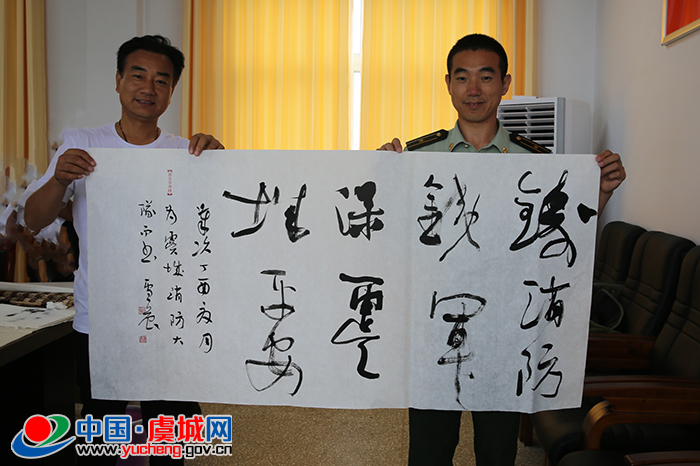 铸消防
铁军
保虞
城平安
岁次丁酉夏月
为虞城消防大
队
中国·虞城网
www.yucheng.gov.cn